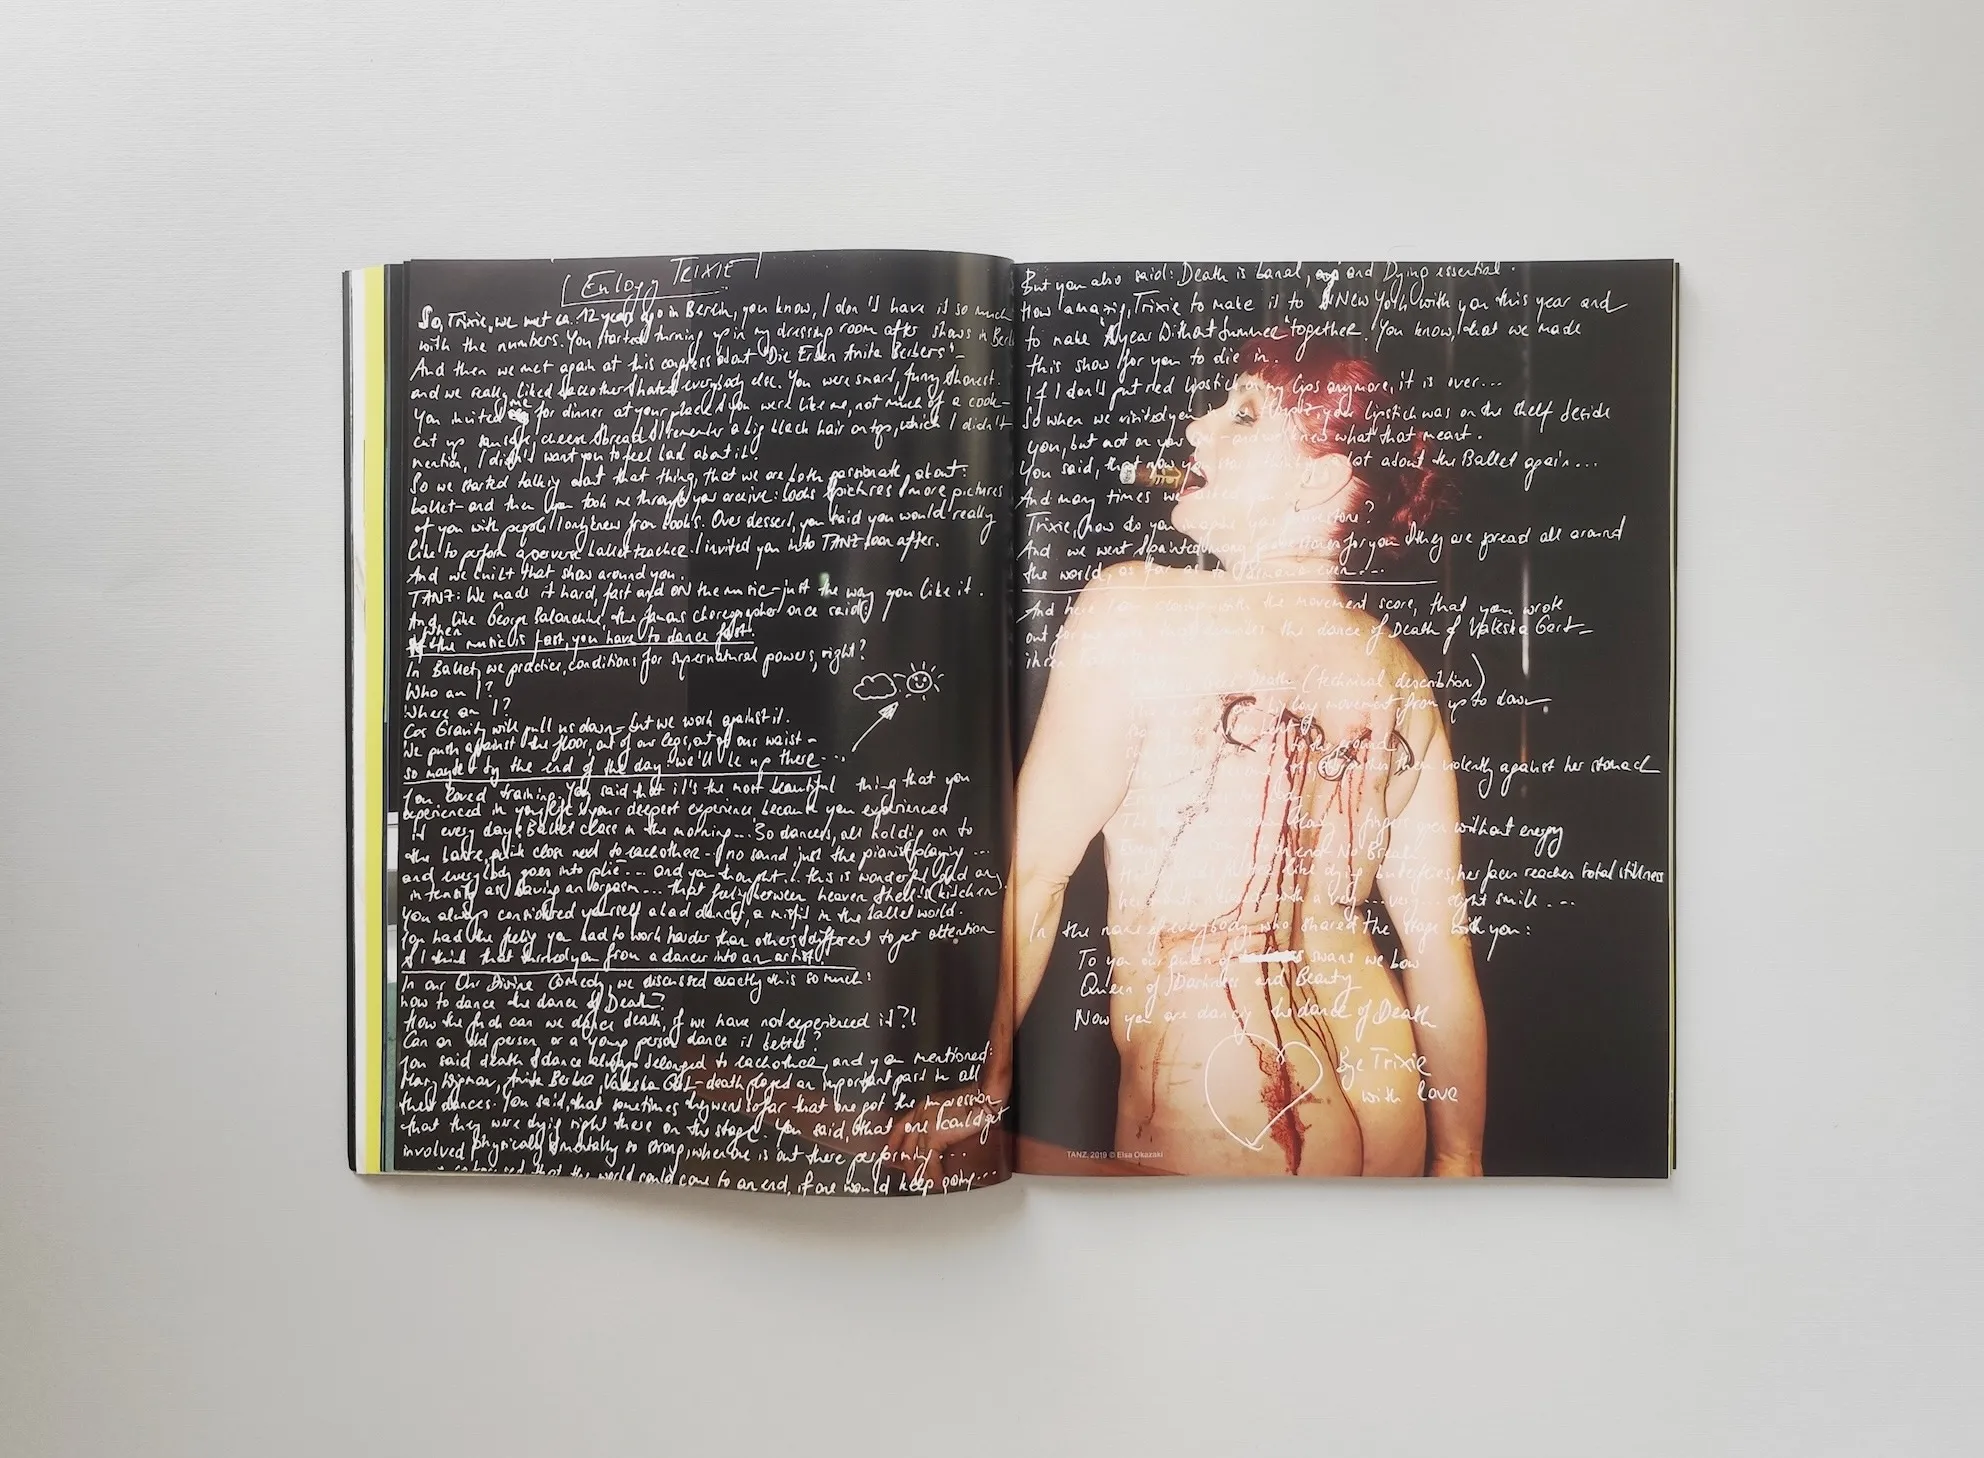 Eulogy TRIXIE
So, Trixie, we met ca. 12 years ago in Berlin, you know, I don't have it so much
with the numbers. You started turning up in my dressing room after shows in Berl
And then we met again at this congress about "Die Erben Anita Berbers" –
and we really liked eachother & hated everybody else. You were smart, funny & honest.
You invited me for dinner at your place & you were like me, not much of a cook –
cut up sausage, cheese & bread & I remember a big black hair on top, which I didn't –
mention, I didn't want you to feel bad about it!
So we started talking about that thing, that we are both passionate about –
ballet – and then you took me through your archive: books & pictures & more pictures
of you with people I only knew from books. Over dessert, you said you would really
like to perform a perverse ballet teacher. I invited you into TANZ soon after.
And we built that show around you.
TANZ: We made it hard, fast and ON the music – just the way you like it.
And, like George Balanchine, the famous choreographer once said:
When the music is fast, you have to dance fast.
In Ballet, we practice, conditions for supernatural powers, right?
Who am I?
Where am I?
Cos Gravity will pull us down – but we work against it.
We push against the floor, out of our legs, out of our waist –
so maybe by the end of the day we'll be up there...
You loved training. You said that it's the most beautiful thing that you
experienced in your life & your deepest experience because you experienced
it every day: Ballet class in the morning... So dancers, all holding on to
the barre, quite close next to eachother – no sound, just the pianist playing ...
and everybody goes into plié ... and you thought: this is wonderful (and an)
intensity as having an orgasm ... that feeling between heaven & hell's kitchen
You always considered yourself a bad dancer, a misfit in the ballet world.
You had the feeling you had to work harder than others & different to get attention
& I think that turned you from a dancer into an artist.
In our Our Divine Comedy, we discussed exactly this so much:
how to dance the dance of Death?
How the fuck can we dance death, if we have not experienced it?!
Can an old person or a young person dance it better?
You said death & dance always belonged to eachother, and you mentioned:
Mary Wigman, Anita Berber, Valeska Gert – death played an important part in all
their dances. You said, that sometimes they went so far that one got the impression
that they were dying right there on the stage. You said, that one could get
involved physically & mentally so strong, when one is out there performing...
that the world could come to an end, if one would keep going...
But you also said: Death is banal, and Dying essential.
How amazing, Trixie to make it to New York with you this year and
to make "A year without Summer" together. You know, that we made
this show for you to die in.
If I don't put red lipstick on my lips anymore, it is over...
So when we visited you in the, your lipstick was on the shelf beside
you, but not on your – and we knew what that meant.
You said, that now you a lot about the Ballet again...
And many times we asked you
Trixie, how do you imagine your gravestone?
And we went & painted many gravestones for you & they are spread all around
the world, as far as to even...
And here I am closing with the movement score, that you wrote
out for me the dance of Death of Valeska Gert –
ihren
Death (technical describtion)
movement from up to down
to the ground
them violently against her stomach
without energy
No Break
like dying butterflies, her face reaches total stillness
with a very... very... slight smile...
In the name of everybody, who shared the stage with you:
To you our queen of swans we bow
Queen of Darkness and Beauty
Now you are dancing the dance of Death
Bye Trixie
with love
TANZ, 2019 © Elsa Okazaki